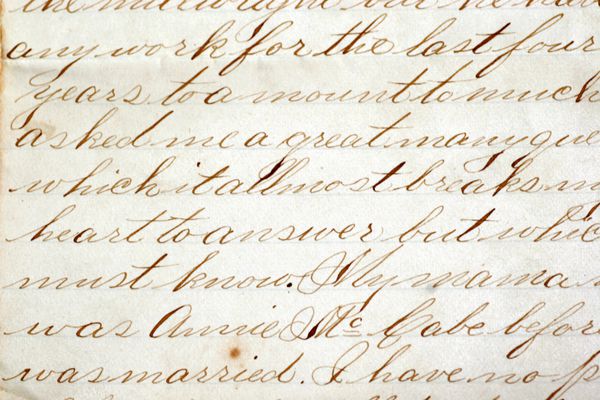 any work for the last four
years to a mount to much
asked me a great many que
which it allmost breaks m
heart to answer but whic
must know. My mama
was Annie Mc Cabe befor
was married. I have no p